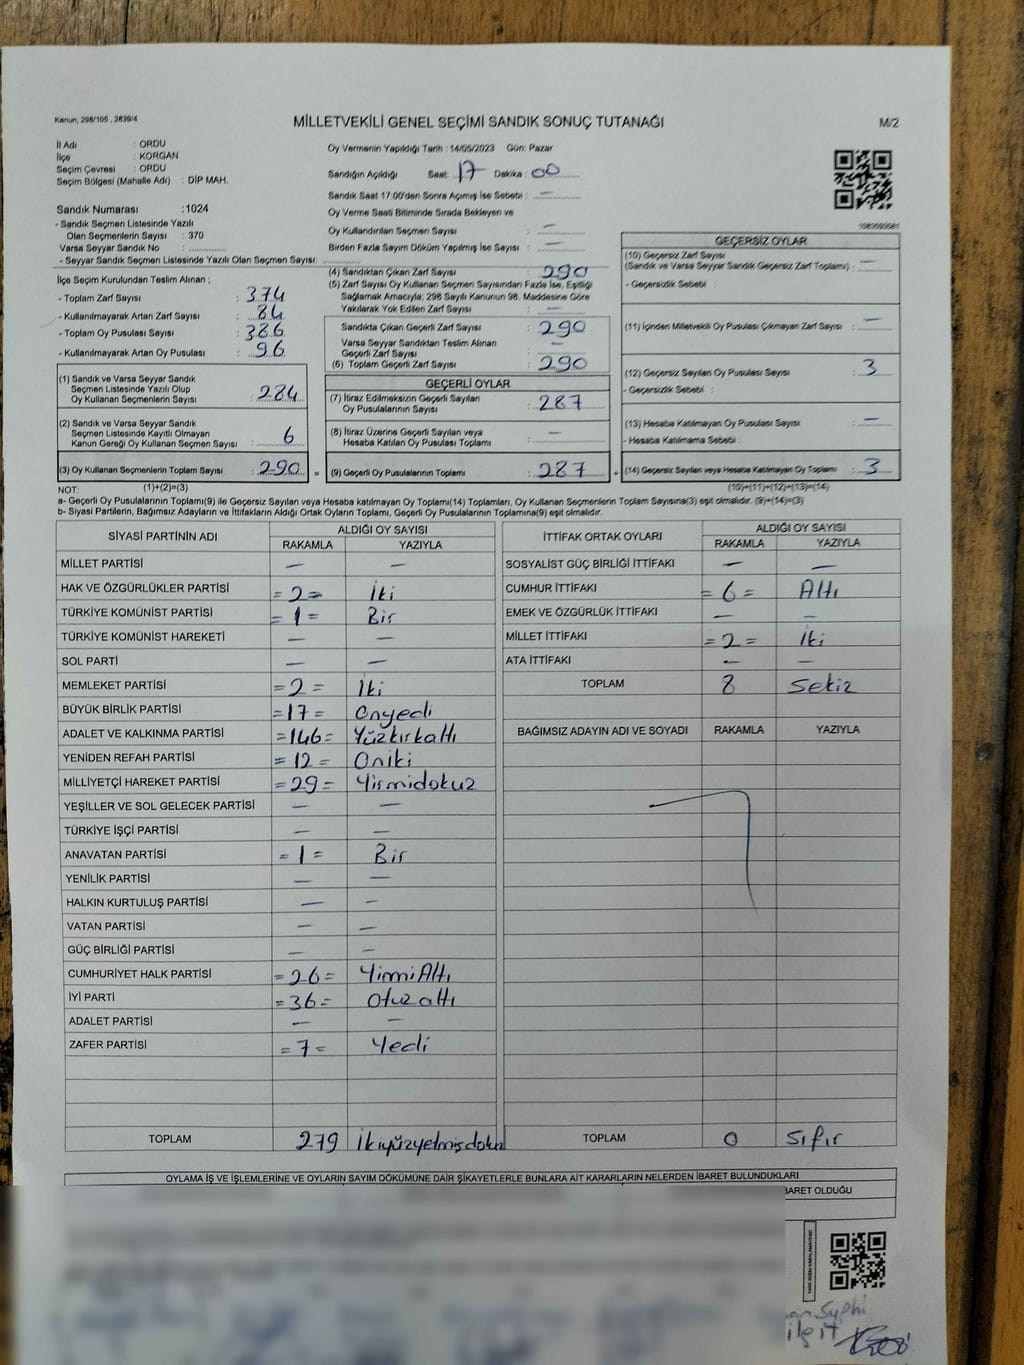 Kanun; 298/105 , 2839/4
MİLLETVEKİLİ GENEL SEÇİMİ SANDIK SONUÇ TUTANAĞI
M/2
İl Adı : ORDU
İlçe : KORGAN
Seçim Çevresi : ORDU
Seçim Bölgesi (Mahalle Adı) : DİP MAH.
Oy Vermenin Yapıldığı Tarih : 14/05/2023 Gün: Pazar
Sandığın Açıldığı Saat: 17 Dakika : 00
Sandık Saat 17:00'den Sonra Açılmış İse Sebebi : —
Oy Verme Saati Bitiminde Sırada Bekleyen ve
Oy Kullandırılan Seçmen Sayısı : —
Birden Fazla Sayım Döküm Yapılmış İse Sayısı : —
Sandık Numarası :1024
- Sandık Seçmen Listesinde Yazılı
Olan Seçmenlerin Sayısı : 370
Varsa Seyyar Sandık No :
- Seyyar Sandık Seçmen Listesinde Yazılı Olan Seçmen Sayısı:
İlçe Seçim Kurulundan Teslim Alınan ;
- Toplam Zarf Sayısı : 374
- Kullanılmayarak Artan Zarf Sayısı : 84
- Toplam Oy Pusulası Sayısı : 386
- Kullanılmayarak Artan Oy Pusulası : 96
(1) Sandık ve Varsa Seyyar Sandık
Seçmen Listesinde Yazılı Olup
Oy Kullanan Seçmenlerin Sayısı : 284
(2) Sandık ve Varsa Seyyar Sandık
Seçmen Listesinde Kayıtlı Olmayan
Kanun Gereği Oy Kullanan Seçmen Sayısı : 6
(3) Oy Kullanan Seçmenlerin Toplam Sayısı : 290
(1)+(2)=(3)
(4) Sandıktan Çıkan Zarf Sayısı : 290
(5) Zarf Sayısı Oy Kullanan Seçmen Sayısından Fazla İse, Eşitliği
Sağlamak Amacıyla; 298 Sayılı Kanunun 98. Maddesine Göre
Yakılarak Yok Edilen Zarf Sayısı : —
Sandıkta Çıkan Geçerli Zarf Sayısı : 290
Varsa Seyyar Sandıktan Teslim Alınan
Geçerli Zarf Sayısı : —
(6) Toplam Geçerli Zarf Sayısı : 290
GEÇERLİ OYLAR
(7) İtiraz Edilmeksizin Geçerli Sayılan
Oy Pusulalarının Sayısı : 287
(8) İtiraz Üzerine Geçerli Sayılan veya
Hesaba Katılan Oy Pusulası Toplamı : —
= (9) Geçerli Oy Pusulalarının Toplamı : 287
GEÇERSİZ OYLAR
(10) Geçersiz Zarf Sayısı
(Sandık ve Varsa Seyyar Sandık Geçersiz Zarf Toplamı) : —
- Geçersizlik Sebebi :
(11) İçinden Milletvekili Oy Pusulası Çıkmayan Zarf Sayısı : —
(12) Geçersiz Sayılan Oy Pusulası Sayısı : 3
- Geçersizlik Sebebi :
(13) Hesaba Katılmayan Oy Pusulası Sayısı : —
- Hesaba Katılmama Sebebi :
+ (14) Geçersiz Sayılan veya Hesaba Katılmayan Oy Toplamı : 3
(10)+(11)+(12)+(13)=(14)
NOT:
a- Geçerli Oy Pusulalarının Toplamı(9) ile Geçersiz Sayılan veya Hesaba katılmayan Oy Toplamı(14) Toplamları, Oy Kullanan Seçmenlerin Toplam Sayısına(3) eşit olmalıdır. (9)+(14)=(3)
b- Siyasi Partilerin, Bağımsız Adayların ve İttifakların Aldığı Ortak Oyların Toplamı, Geçerli Oy Pusulalarının Toplamına(9) eşit olmalıdır.
SİYASİ PARTİNİN ADI ALDIĞI OY SAYISI
RAKAMLA YAZIYLA
MİLLET PARTİSİ — —
HAK VE ÖZGÜRLÜKLER PARTİSİ =2= İki
TÜRKİYE KOMÜNİST PARTİSİ =1= Bir
TÜRKİYE KOMÜNİST HAREKETİ — —
SOL PARTİ — —
MEMLEKET PARTİSİ =2= İki
BÜYÜK BİRLİK PARTİSİ =17= Onyedi
ADALET VE KALKINMA PARTİSİ =146= Yüzkırkaltı
YENİDEN REFAH PARTİSİ =12= Oniki
MİLLİYETÇİ HAREKET PARTİSİ =29= Yirmidokuz
YEŞİLLER VE SOL GELECEK PARTİSİ — —
TÜRKİYE İŞÇİ PARTİSİ — —
ANAVATAN PARTİSİ =1= Bir
YENİLİK PARTİSİ — —
HALKIN KURTULUŞ PARTİSİ — —
VATAN PARTİSİ — —
GÜÇ BİRLİĞİ PARTİSİ — —
CUMHURİYET HALK PARTİSİ =26= YirmiAltı
İYİ PARTİ =36= Otuzaltı
ADALET PARTİSİ — —
ZAFER PARTİSİ =7= Yedi
TOPLAM 279 İkiyüzyetmişdokuz
İTTİFAK ORTAK OYLARI ALDIĞI OY SAYISI
RAKAMLA YAZIYLA
SOSYALİST GÜÇ BİRLİĞİ İTTİFAKI — —
CUMHUR İTTİFAKI =6= Altı
EMEK VE ÖZGÜRLÜK İTTİFAKI — —
MİLLET İTTİFAKI =2= İki
ATA İTTİFAKI — —
TOPLAM 8 Sekiz
BAĞIMSIZ ADAYIN ADI VE SOYADI RAKAMLA YAZIYLA
TOPLAM 0 Sıfır
OYLAMA İŞ VE İŞLEMLERİNE VE OYLARIN SAYIM DÖKÜMÜNE DAİR ŞİKAYETLERLE BUNLARA AİT KARARLARIN NELERDEN İBARET BULUNDUKLARI
BARET OLDUĞU